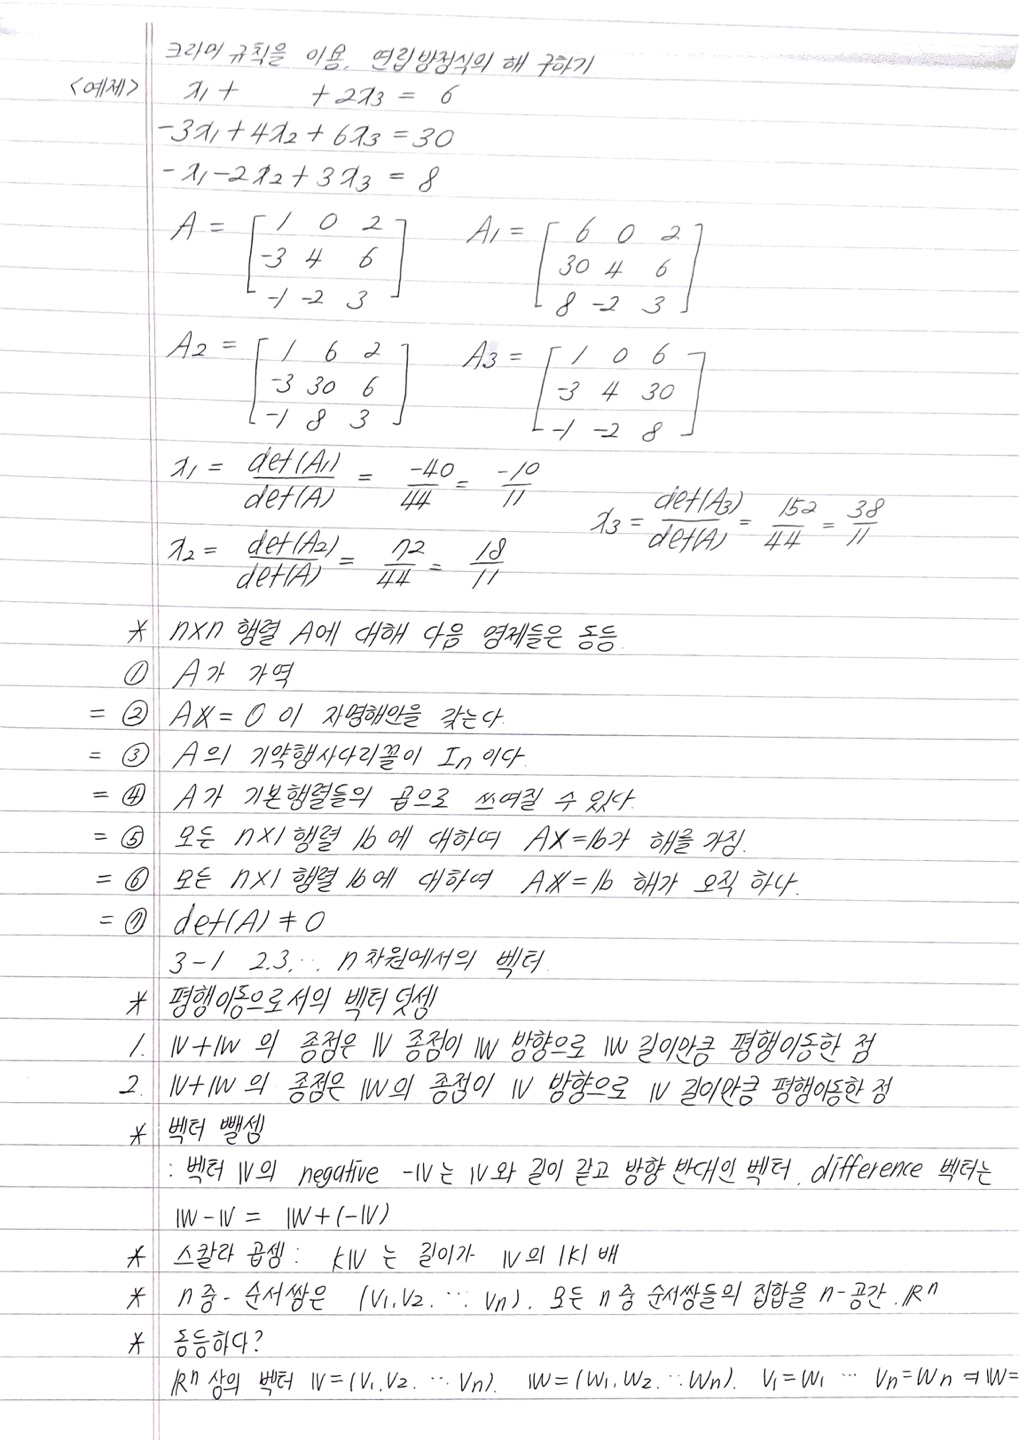 크라머 규칙을 이용, 연립방정식의 해 구하기
<예제> x1 + + 2x3 = 6
-3x1 + 4x2 + 6x3 = 30
-x1 - 2x2 + 3x3 = 8
A = [ 1 0 2 A1 = [ 6 0 2
-3 4 6 30 4 6
-1 -2 3 ] 8 -2 3 ]
A2 = [ 1 6 2 A3 = [ 1 0 6
-3 30 6 -3 4 30
-1 8 3 ] -1 -2 8 ]
x1 = det(A1)/det(A) = -40/44 = -10/11
x3 = det(A3)/det(A) = 152/44 = 38/11
x2 = det(A2)/det(A) = 72/44 = 18/11
* n×n 행렬 A에 대해 다음 명제들은 동등
① A가 가역
= ② A𝕩 = 0 이 자명해만을 갖는다.
= ③ A의 기약행사다리꼴이 In 이다.
= ④ A가 기본행렬들의 곱으로 쓰여질 수 있다.
= ⑤ 모든 n×1 행렬 𝕓에 대하여 A𝕩 = 𝕓가 해를 가짐.
= ⑥ 모든 n×1 행렬 𝕓에 대하여 A𝕩 = 𝕓 해가 오직 하나.
= ⑦ det(A) ≠ 0
3-1 2.3. ‥. n차원에서의 벡터
* 평행이동으로서의 벡터 덧셈
1. 𝕍+𝕎 의 종점은 𝕍 종점이 𝕎 방향으로 𝕎 길이만큼 평행이동한 점
2. 𝕍+𝕎 의 종점은 𝕎의 종점이 𝕍 방향으로 𝕍 길이만큼 평행이동한 점
* 벡터 뺄셈
: 벡터 𝕍의 negative -𝕍는 𝕍와 길이 같고 방향 반대인 벡터. difference 벡터는
𝕎-𝕍 = 𝕎+(-𝕍)
* 스칼라 곱셈: k𝕍 는 길이가 𝕍의 |k| 배
* n중-순서쌍은 (V1, V2. … Vn). 모든 n중 순서쌍들의 집합을 n-공간. ℝn
* 동등하다?
ℝn 상의 벡터 𝕍 = (V1, V2. … Vn). 𝕎 = (W1, W2. … Wn). V1 = W1 … Vn = Wn ⇒ 𝕎 =